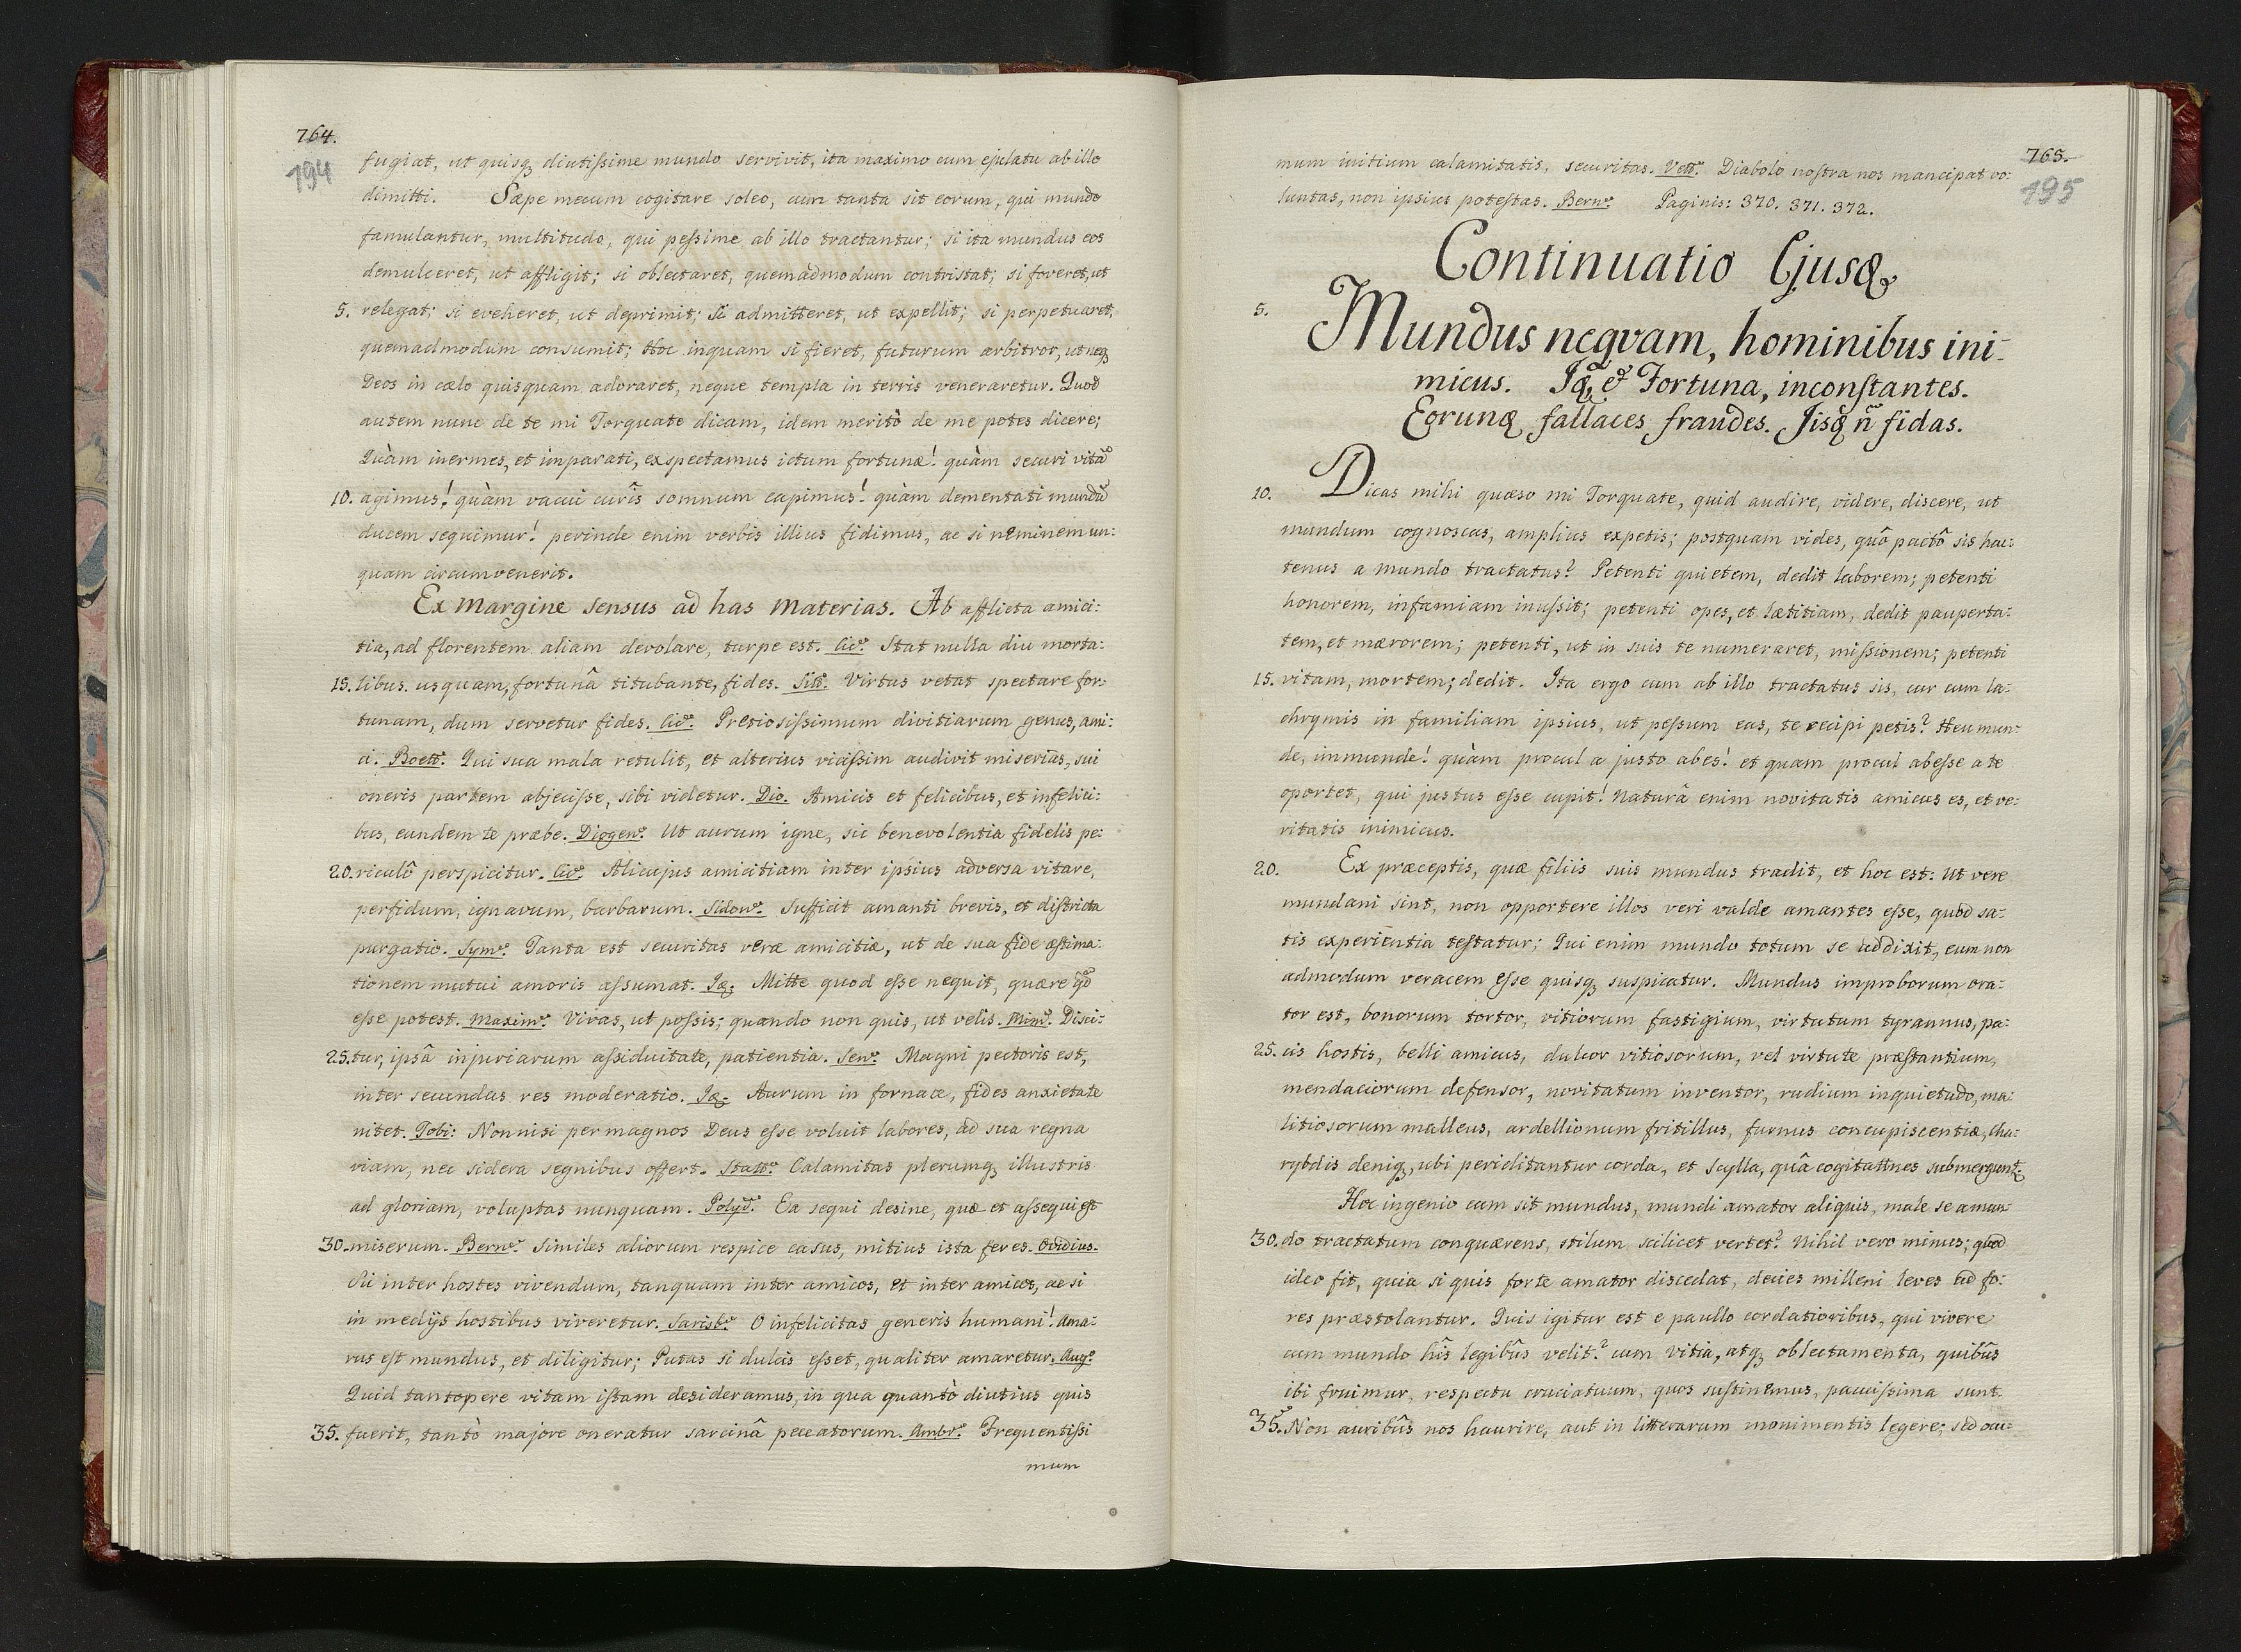 764.
194
fugiat, ut quisq, diutissime mundo servivit, ita maximo cum ejulatu ab illo
dimitti. Sæpe mecum cogitare soleo, cum tanta sit eorum, qui mundo
famulantur, multitudo, qui pessime ab illo tractantur; si ita mundus eos
demulceret, ut affligit; si oblectaret, quemadmodum contristat; si foveret, ut
5. relegat; si eveheret, ut deprimit; si admitteret, ut expellit; si perpetuaret,
quemadmodum consumit; Hoc inquam si fieret, futurum arbitror, ut neq,
Deos in cælo quisquam adoraret, neque templa in terris veneraretur. Quod
autem nunc de te mi Torquate dicam, idem meritò de me potes dicere;
Quàm inermes, et imparati, exspectamus ictum fortunæ! quàm securi vitã
10. agimus! quàm vacui curîs somnum capimus! quàm dementati mundũ
ducem sequimur! perinde enim verbis illius fidimus, ac si neminem un:
quam circumvenerit.
Ex Margine sensus ad has Materias. Ab afflicta amici:
tia, ad florentem aliam devolare, turpe est. Cic. Stat nulla diu morta:
15. libus usquam, fortunâ titubante, fides. Silẽ. Virtus vetat spectare for:
tunam, dum servetur fides. Cic. Pretiosissimum divitiarum genus, ami:
ci. Boetĩ. Qui sua mala retulit, et alterius vicissim audivit miserias, sui
oneris partem abjecisse, sibi videtur. Dio. Amicis et felicibus, et infelici:
bus, eundem te præbe. Diogeñ. Ut aurum igne, sic benevolentia fidelis pe:
20. riculô perspicitur. Cic. Alicujus amicitiam inter ipsius adversa vitare,
perfidum, ignavum, barbarum. Sidoñ. Sufficit amanti brevis, et districta
purgatio. Sym̃. Tanta est securitas veræ amicitiæ, ut de sua fide æstima:
tionem mutui amoris assumat. Iq. Mitte quod esse nequit, quære qõ
esse potest. Maxim̃. Vivas, ut possis; quando non quis, ut velis. Mim̃. Disci:
25. tur, ipsâ injuriarum assiduitate, patientia. Señ. Magni pectoris est,
inter secundas res moderatio. Iq. Aurum in fornace, fides anxietate
nitet. Tobi: Nonnisi per magnos Deus esse voluit labores, ad sua regna
viam, nec sidera segnibus offert. Statĩ. Calamitas plerumq, illustris
ad gloriam, voluptas nunquam. Polyd̃. Ea sequi desine, quæ et assequi est
30. miserum. Berñ. Similes aliorum respice casus, mitius ista feres. Ovidius.
Sic inter hostes vivendum, tanquam inter amicos, et inter amicos, ac si
in medijs hostibus viveretur. Sarisb̃. O infelicitas generis humani! Ama:
rus est mundus, et diligitur; Putas si dulcis esset, qualiter amaretur. Aug̃.
Quid tantopere vitam istam desideramus, in qua quantò diutius quis
35. fuerit, tantò majore oneratur sarcinâ peccatorum. Ambr̃. Frequentissi
mum
765.
195
mum initium calamitatis, securitas. Velĩ. Diabolo nostra nos mancipat vo:
luntas, non ipsius potestas. Berñ. Paginis: 370. 371. 372.
Continuatio Ejusq
5. Mundus neqvam, hominibus ini-
micus. Iq, et Fortuna, inconstantes.
Eorunq fallaces fraudes. Iisq ñ fidas.
10. Dicas mihi quæso mi Torquate, quid audire, videre, discere, ut
mundum cognoscas, amplius expetis; postquam vides, quô pactô sis hac:
tenus a mundo tractatus? Petenti quietem, dedit laborem; petenti
honorem, infamiam inussit; petenti opes, et lætitiam, dedit pauperta:
tem, et mærorem; petenti, ut in suis te numeraret, missionem; petenti
15. vitam, mortem; dedit. Ita ergo cum ab illo tractatus sis, cur cum la:
chrymis in familiam ipsius, ut pessum eas, te recipi petis? Heu mun:
de, immunde! quàm procul a justo abes! et quam procul abesse a te
oportet, qui justus esse cupit! Naturâ enim novitatis amicus es, et ve:
ritatis inimicus.
20. Ex præceptis, quæ filiis suis mundus tradit, et hoc est: Ut vere
mundani sint, non opportere illos veri valde amantes esse, quod sa:
tis experientia testatur; Qui enim mundo totum se addixit, eum non
admodum veracem esse quisq, suspicatur. Mundus improborum ora:
tor est, bonorum tortor, vitiorum fastigium, virtutum tyrannus, pa:
25. cis hostis, belli amicus, dulcor vitiosorum, vel virtute præstantium,
mendaciorum defensor, novitatum inventor, rudium inquietudo, ma:
litiosorum malleus, ardellionum fritillus, furnus concupiscentiæ, cha:
rybdis deniq, ubi periclitantur corda, et Scylla, quâ cogitatnes submergunt.
Hoc ingenio cum sit mundus, mundi amator aliquis, male se a mun-
30. do tractatum conquærens, stilum scilicet vertet? Nihil vero minus; quod
ideo fit, quia si quis forte amator discedat, decies milleni leves ad fo:
res præstolantur. Quis igitur est e paullo cordatioribus, qui vivere
cum mundo hîs legibûs velit? cum vitia, atq, oblectamenta, quibûs
ibi fruimur, respectu cruciatuum, quos sustinemus, paucissima sunt.
35. Non auribûs nos haurire, aut in litterarum monimentis legere; sed ocu: